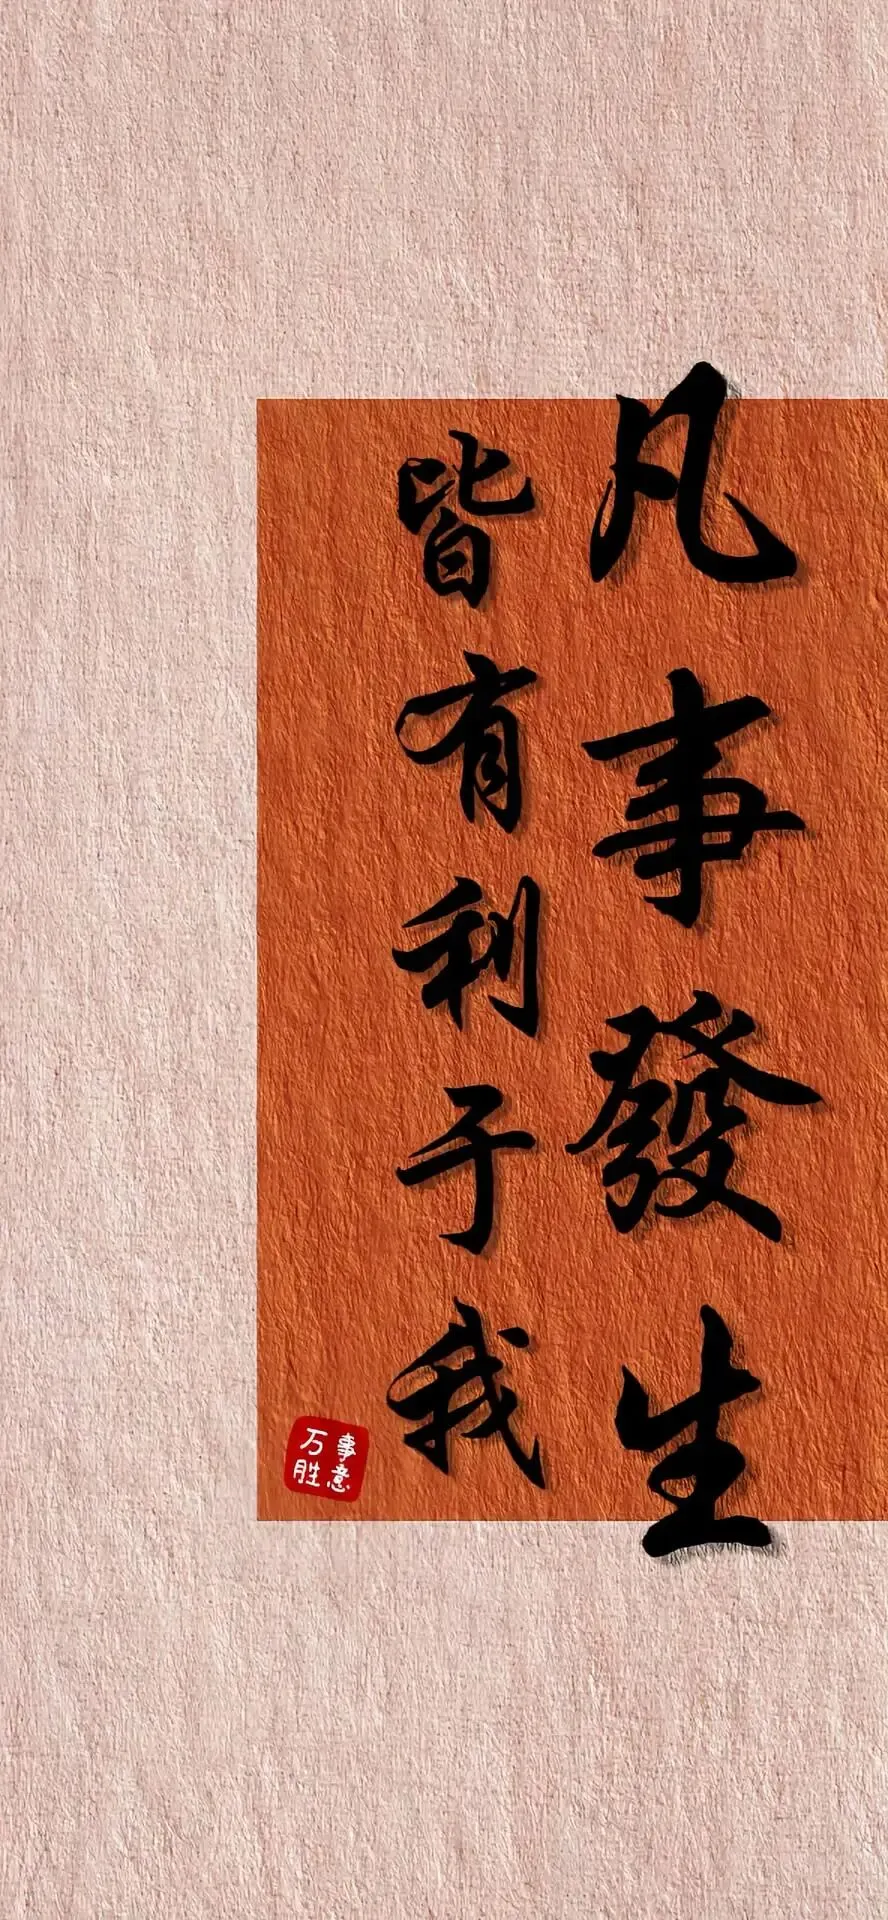 凡事發生
皆有利于我
事意
万胜